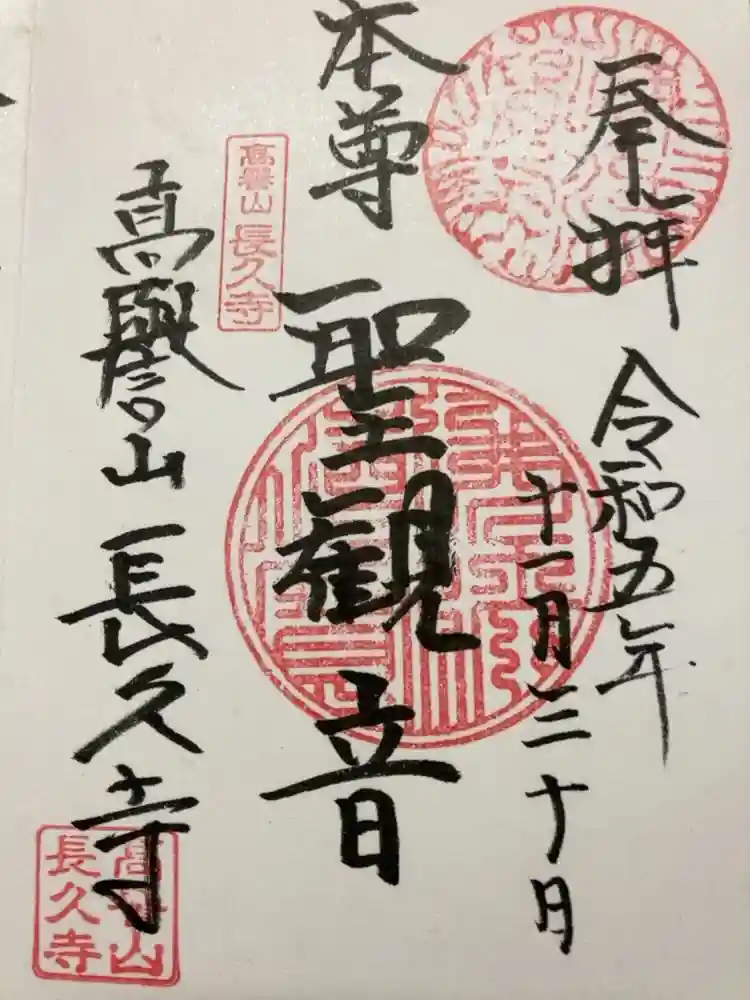 奉拝
令和五年
十一月三十日
本尊
聖観音
高譽山長久寺
髙譽山長久寺
高譽山
長久寺